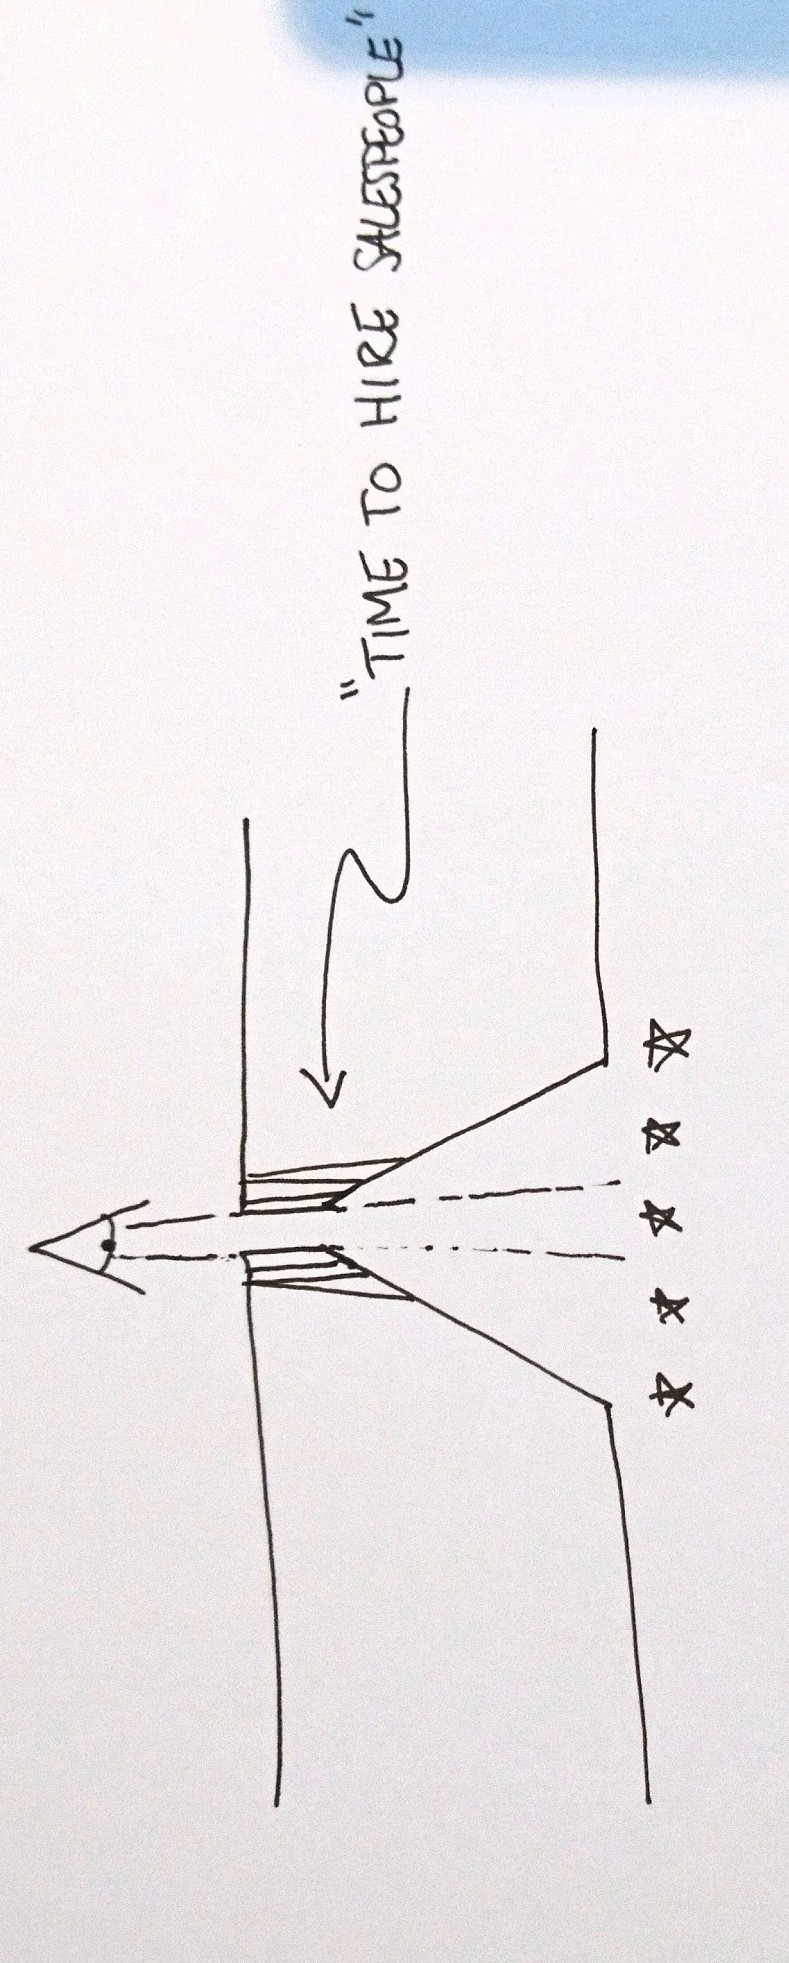 "TIME TO HIRE SALESPEOPLE"